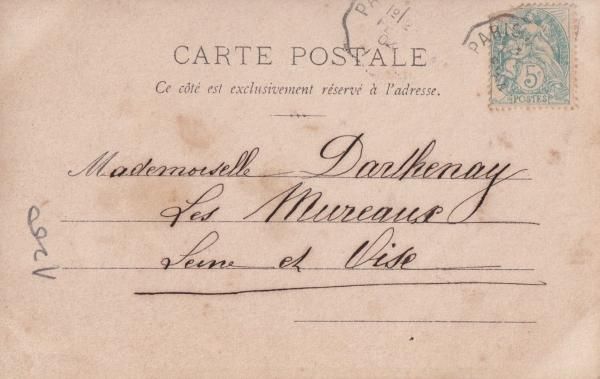 CARTE POSTALE
Ce côté est exclusivement réservé à l'adresse.
PARIS
5c
POSTES
Mademoiselle Darthenay
Les Mureaux
Seine et Oise